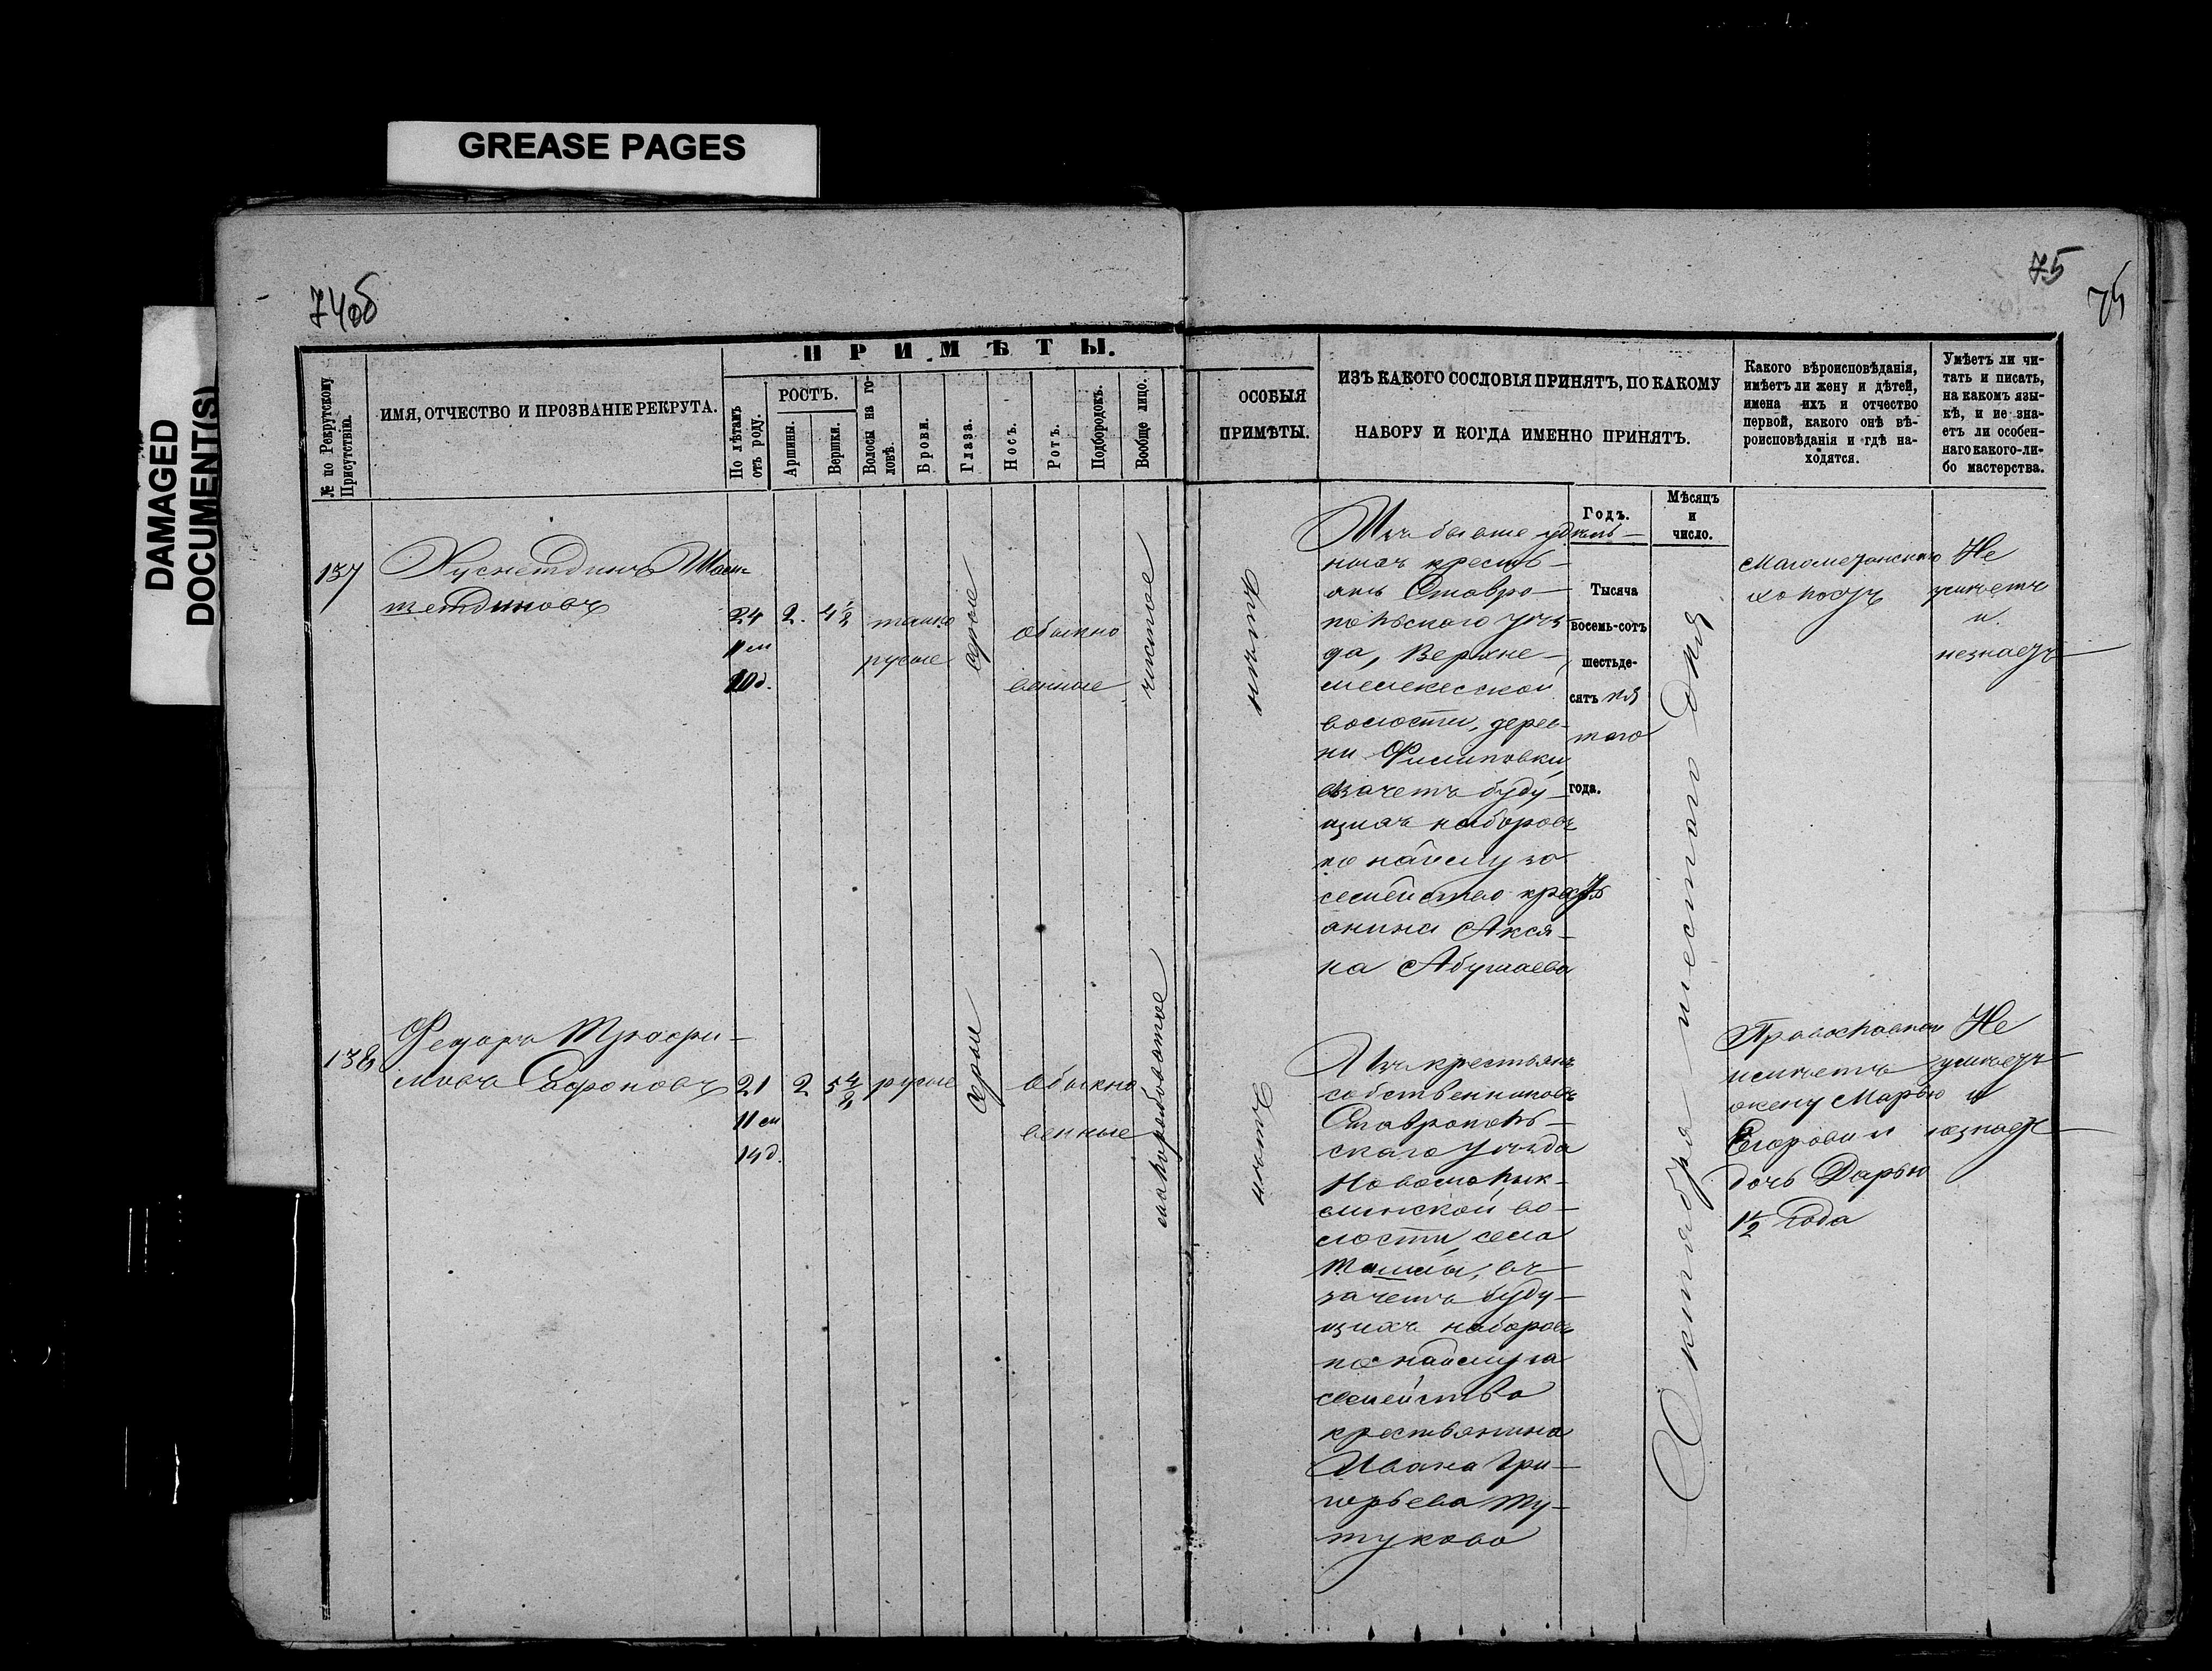 GREASE PAGES
DAMAGED
DOCUMENT(S)
74об
75
75
ПРИМѢТЫ.
№ по Рекрутскому Присутствію.
ИМЯ, ОТЧЕСТВО И ПРОЗВАНІЕ РЕКРУТА.
По лѣтамъ отъ роду.
РОСТЪ.
Аршины.
Вершки.
Волосы на головѣ.
Брови.
Глаза.
Носъ.
Ротъ.
Подбородокъ.
Вообще лицо.
ОСОБЫЯ
ПРИМѢТЫ.
ИЗЪ КАКОГО СОСЛОВІЯ ПРИНЯТЪ, ПО КАКОМУ
НАБОРУ И КОГДА ИМЕННО ПРИНЯТЪ.
Какого вѣроисповѣданія,
имѣетъ ли жену и дѣтей,
имена ихъ и отчество
первой, какого онѣ вѣ-
роисповѣданія и гдѣ на-
ходятся.
Умѣетъ ли чи-
тать и писать,
на какомъ язы-
кѣ, и не зна-
етъ ли особен-
наго какого-ли-
бо мастерства.
Годъ.
Мѣсяцъ
и
число.
137
Хуснетдинъ
24
11 м
10 д.
2.
4 1/2
русые
серые
обыкно
венные
чистое
нѣтъ
Изъ бывше удѣль-
ныхъ кресть-
янъ Ставро-
польскаго уѣз
да, Верхне-
мелекесской
волости, дерев-
ни Филиповки
въ зачетъ буду-
щихъ наборовъ
по найму за
семейство кресть
янина
Абушаева
Тысяча
восемь-сотъ
шестьде-
сятъ пя
таго
года.
Октября шестаго дня
Магометанскаго
холостъ
Не
умѣетъ
и
незнаетъ
138
Федоръ Трофи-
мовъ Сафоновъ
21
11 м
14 д.
2
5 4/8
русые
серые
обыкно
венные
малорябоватое
нѣтъ
Изъ крестьянъ
собственниковъ
Ставрополь-
скаго уѣзда
Новомалык-
линской во-
лости, села
въ
зачетъ буду-
щихъ наборовъ
по найму за
семейство
крестьянина
Ивана Гри-
горьева Ту-
тукова
Православнаго
имѣетъ
жену Марью
Егорову и
дочь Дарью
1 1/2 года
Не
умѣетъ
и
незнаетъ